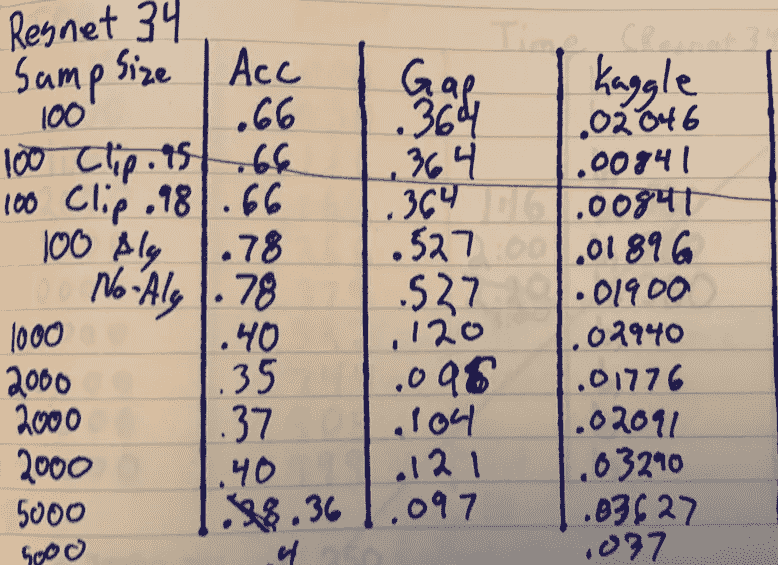 Resnet 34
Samp Size Acc Gap Kaggle
100 .66 .364 .02046
100 Clip .95 .66 .364 .00841
100 Clip .98 .66 .364 .00841
100 Alg .78 .527 .01896
No-Alg .78 .527 .01900
1000 .40 .120 .02940
2000 .35 .096 .01776
2000 .37 .104 .02091
2000 .40 .121 .03290
5000 .38 .36 .097 .03627
5000 .4 .037